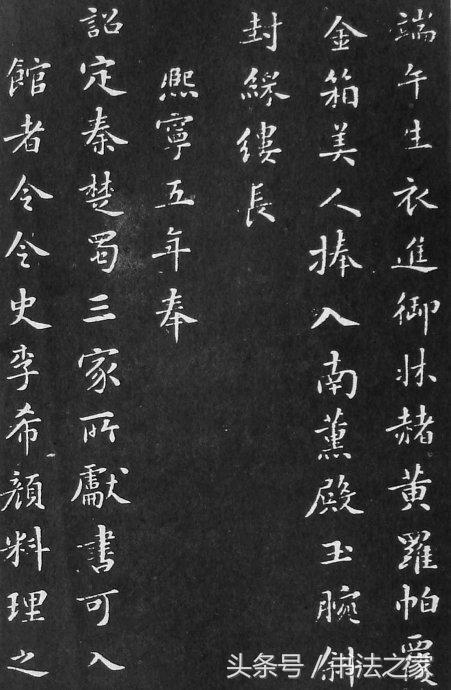 端午生衣進御牀赭黃羅帕覆
金箱美人捧入南薰殿玉腕斜
封綵縷長
熙寧五年奉
詔定秦楚蜀三家所獻書可入
館者令令史李希顏料理之
头条号 / 书法之家